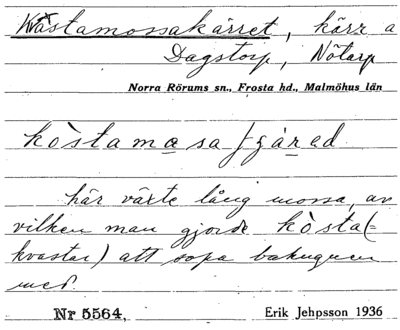 Kåstamossakärret, kärr a
Dagstorp, Nötarp
Norra Rörums sn., Frosta hd., Malmöhus län
kòstamasafjárad
här växte lång mossa, av
vilken man gjorde kòsta (=
kvastar) att sopa bakugnen
med.
Nr 5564, Erik Jehpsson 1936